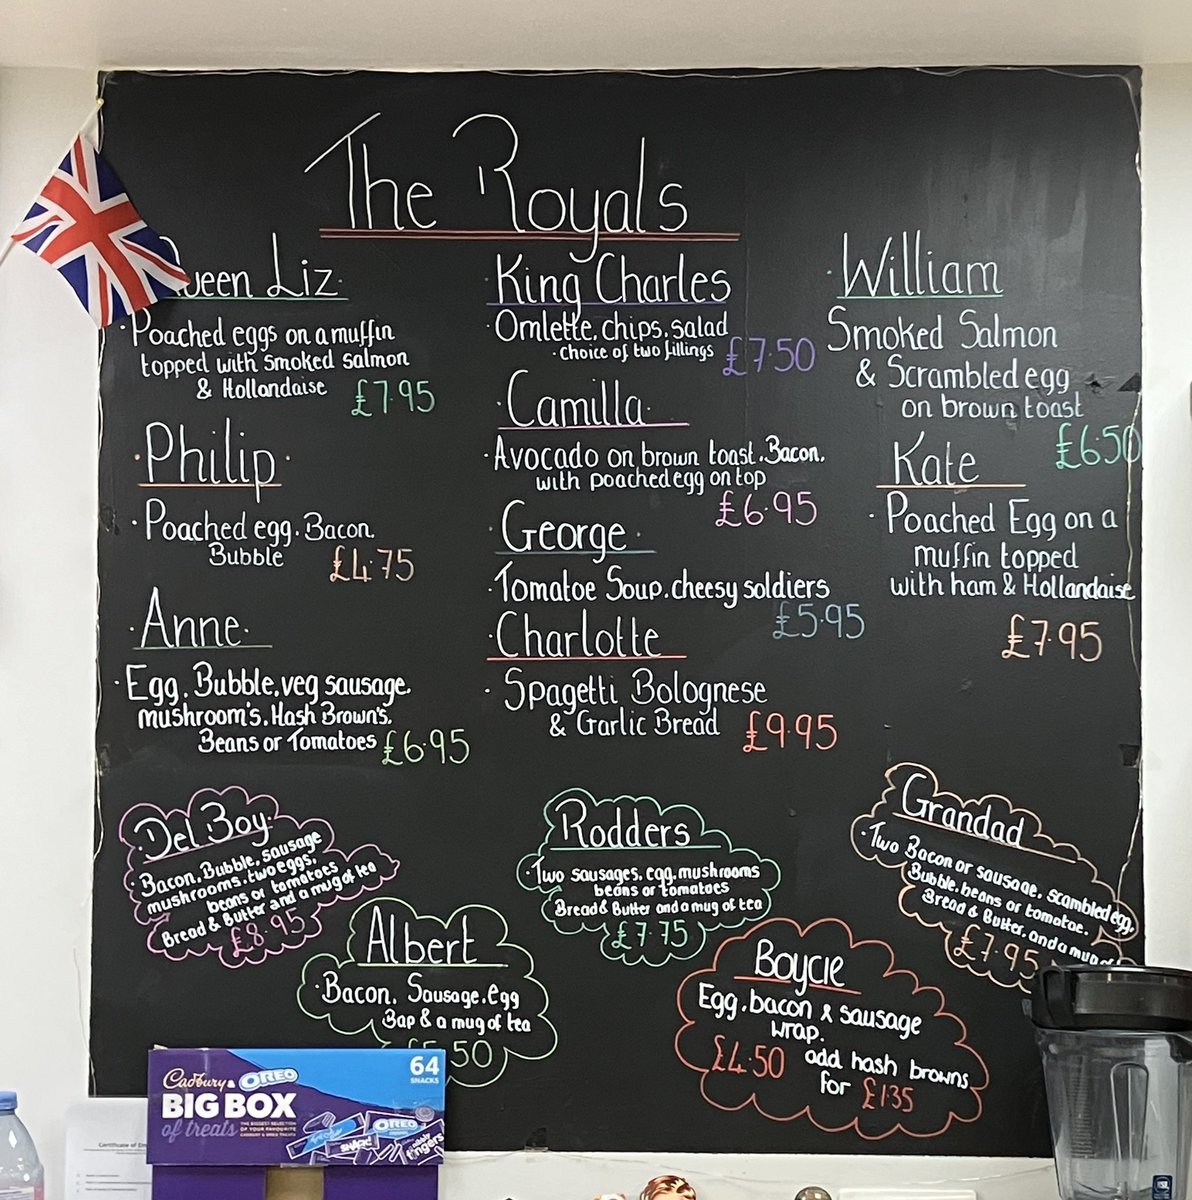 The Royals
Queen Liz.
· Poached eggs on a muffin
topped with Smoked Salmon
& Hollandaise £7.95
· Philip ·
· Poached egg. Bacon.
Bubble £4.75
· Anne.
· Egg. Bubble. veg sausage.
mushroom's. Hash Brown's.
Beans or Tomatoes £6.95
· King Charles
· Omlette. chips. salad
· choice of two fillings £7.50
· Camilla.
· Avocado on brown toast. Bacon.
with poached egg on top
£6.95
· George ·
· Tomatoe Soup. cheesy soldiers
£5.95
· Charlotte
· Spagetti Bolognese
& Garlic Bread £9.95
· William
Smoked Salmon
& Scrambled egg
on brown toast
£6.50
Kate
· Poached Egg on a
muffin topped
with ham & Hollandaise
£7.95
Del Boy.
· Bacon. Bubble. sausage
mushrooms. two eggs.
beans or tomatoes
Bread & Butter and a mug of tea
£8.95
Albert
· Bacon. Sausage. egg
Bap & a mug of tea
£5.50
Rodders
· Two sausages. egg. mushrooms
beans or tomatoes
Bread & Butter and a mug of tea
£7.75
Boycie
Egg. bacon & sausage
wrap.
£4.50 add hash browns
for £1.35
Grandad
· Two Bacon or sausage. scambled egg.
Bubble. beans or tomatoe.
Bread & Butter. and a mug of
£7.95
Cadbury & OREO
BIG BOX
of treats
THE BIGGEST SELECTION
OF YOUR FAVOURITE
CADBURY & OREO TREATS
64
SNACKS
OREO
fingers